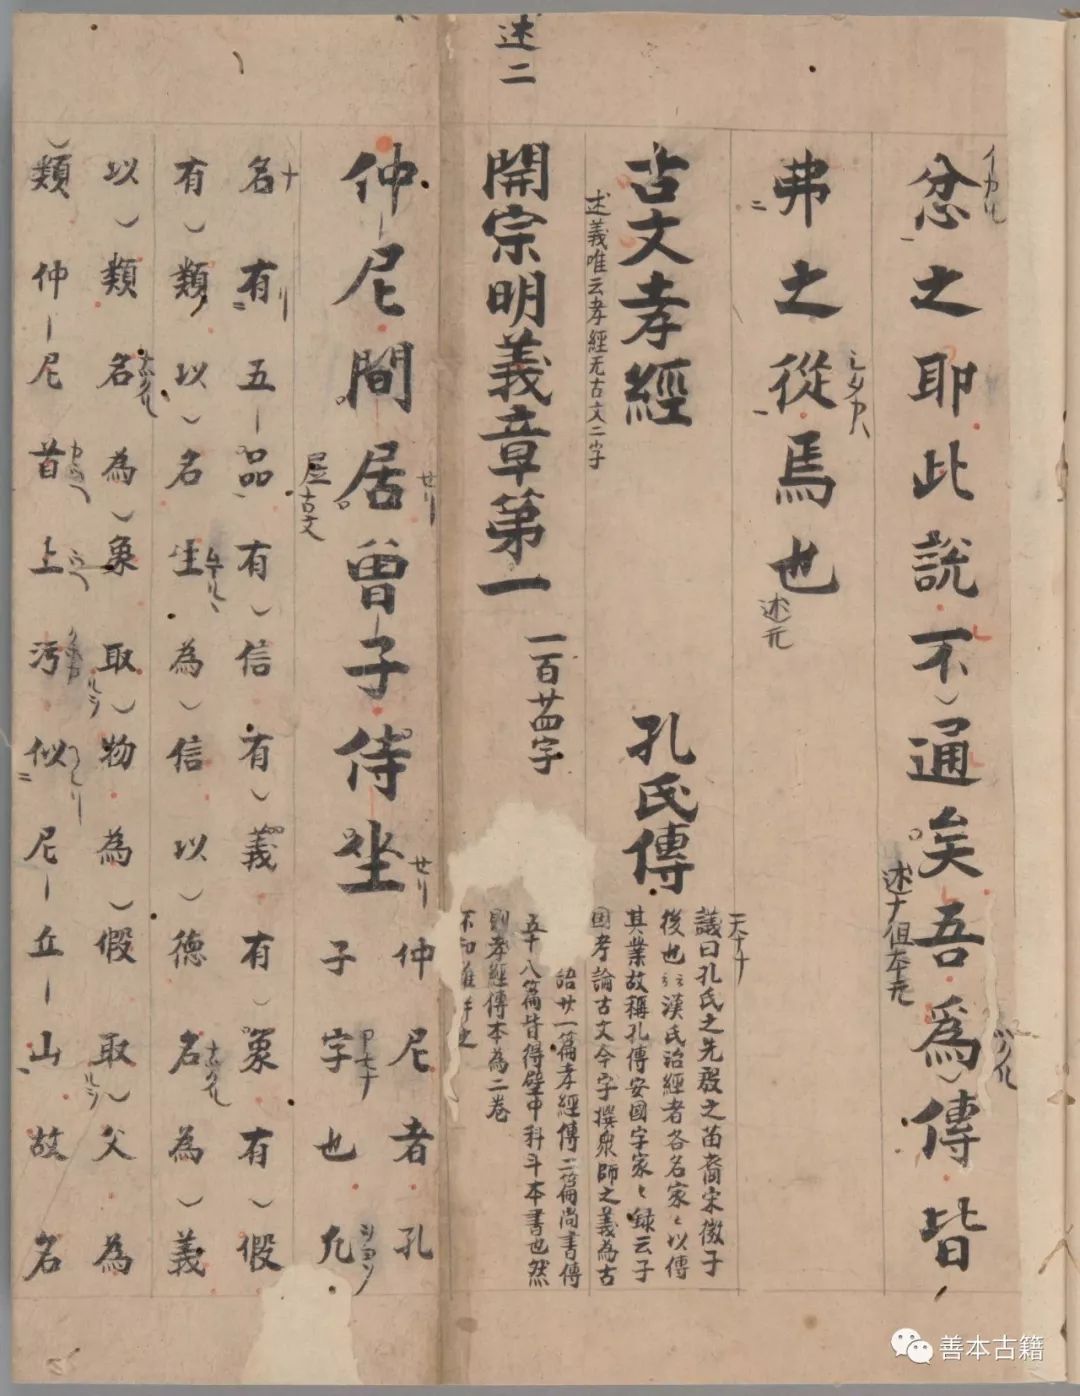 忿之耶此說不通矣吾為傳皆
述ナ但本无
弗之從焉也
述无
古文孝經 孔氏傳
述義唯云孝經无古文二字
議曰孔氏之先殷之苗裔宋微子
後也漢氏治經者各名家〻以傳
其業故稱孔傳安國字家〻録云子
國孝論古文今字撰衆師之義為古
語廿一篇孝經傳二篇尚書傳
五十八篇皆得壁中科斗本書也然
則孝經傳本為二卷
不知誰
述二
開宗明義章第一 一百廿四字
仲尼間居曽子侍坐
𡱈古文
仲尼者孔
子字也凢
名有五品有信有義有象有假
有類以名生為信以德名為義
以類名為象取物為假取父為
類仲尼首上汚似尼丘山故名
善本古籍